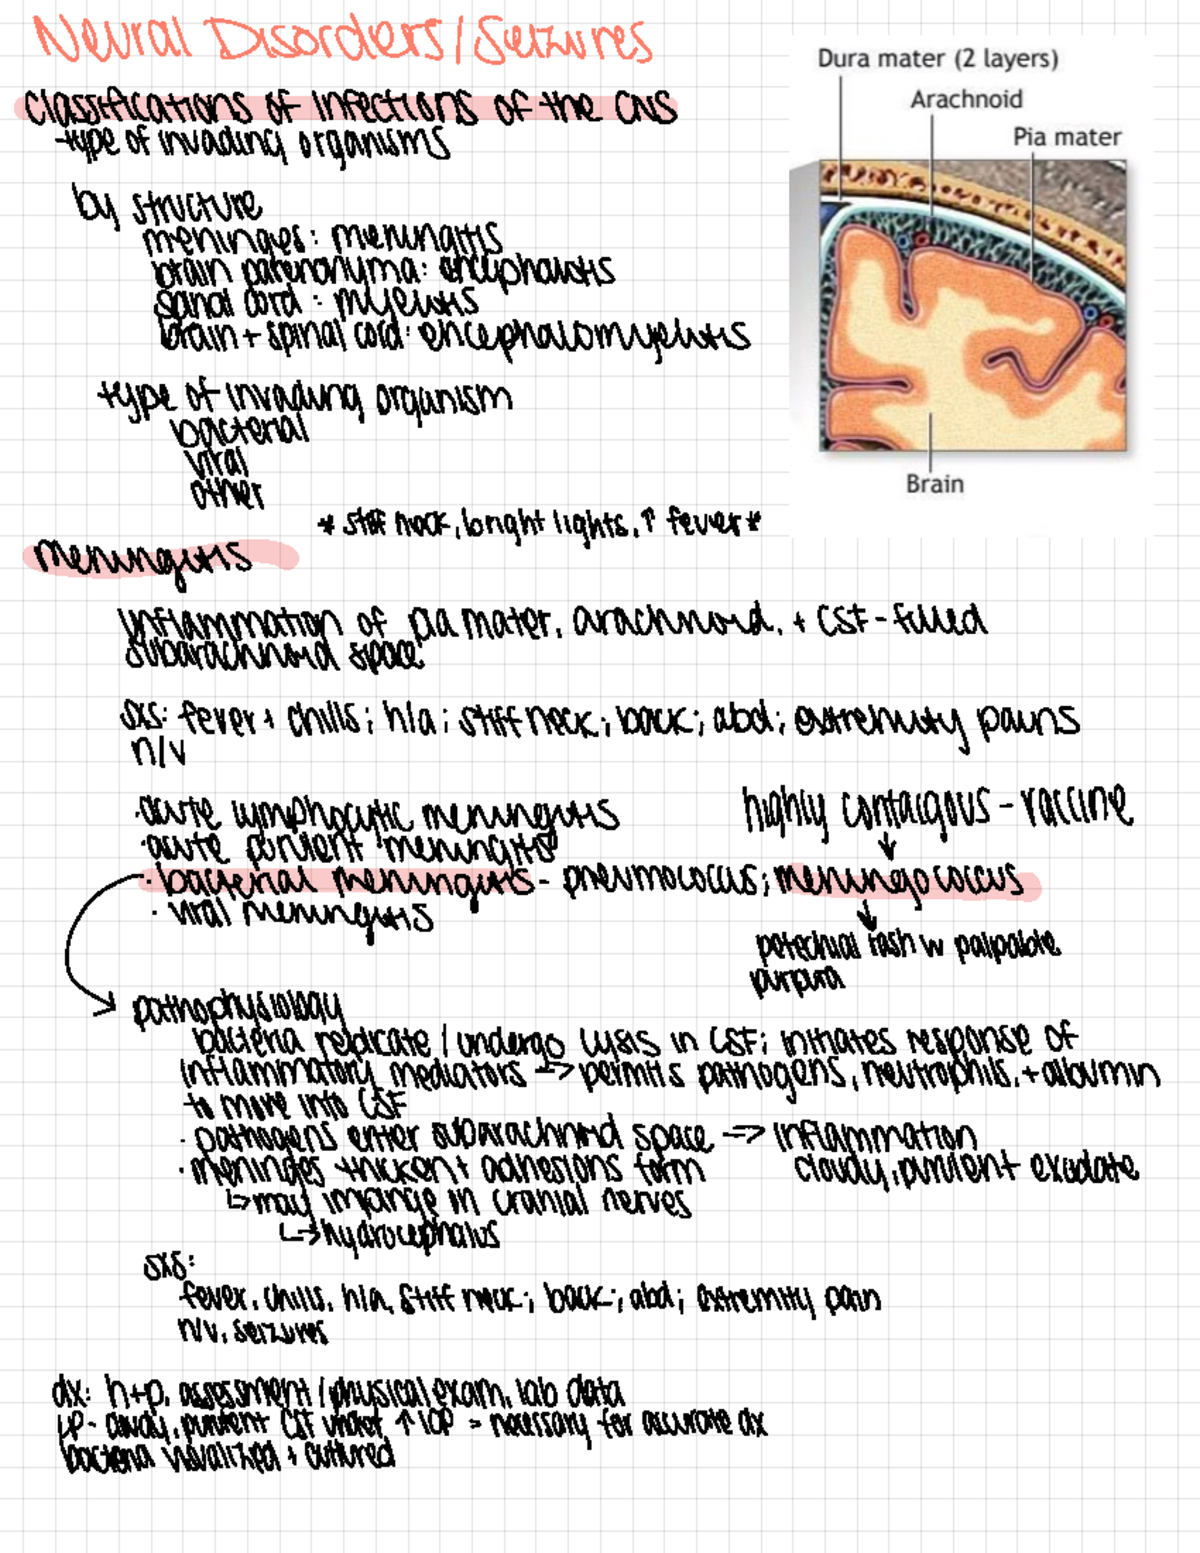 Neural Disorders/Seizures
Dura mater (2 layers)
Arachnoid
Pia mater
Brain
Classifications of infections of the CNS
-type of invading organisms
by structure
meninges: meningitis
brain parenchyma: encephalitis
spinal cord: myelitis
brain + spinal cord: encephalomyelitis
type of invading organism
bacterial
viral
other
* stiff neck, bright lights, ↑ fever *
meningitis
inflammation of pia mater, arachnoid, + CSF-filled
subarachnoid space
sxs: fever + chills; h/a; stiff neck; back; abd; extremity pains
n/v
·acute lymphocytic meningitis
·acute purulent meningitis
· bacterial meningitis - pneumococcus; meningococcus
· viral meningitis
highly contaigous - vaccine
petechial rash w palpable
purpura
pathophysiology
bacteria replicate / undergo lysis in CSF; initiates response of
inflammatory mediators -> permits pathogens, neutrophils, + albumin
to move into CSF
· pathogens enter subarachnoid space -> inflammation
cloudy, purulent exudate
· meninges thicken + adhesions form
↳ may impinge in cranial nerves
↳ hydrocephalus
sxs:
fever, chills, h/a, stiff neck; back; abd; extremity pain
n/v, seizures
dx: h+p, assessment / physical exam, lab data
LP- cloudy, purulent CSF under ↑ ICP > necessary for accurate dx
bacteria visualized + cultured